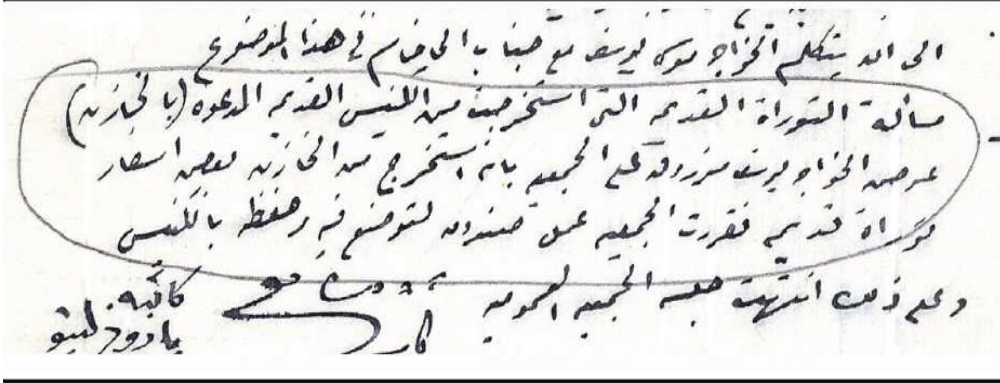 الى انه يتكلم الخواجه موسى يوسف مع جناب الحاخام في هذا الموضوع
مسألة التوراة القديمه التى استخرجت من الكنيس القديم المدعوه (بالخازنه)
عرض الخواجه يوسف مرزوق على الجمعيه بانه استخرج من الخازنه بعض اسفار
توراة قديمه فقررت الجمعيه عمل صندوق لتوضع فيه وحفظه بالكنيس
وعلى ذلك انتهت جلسة الجمعيه العموميه
كاتبه